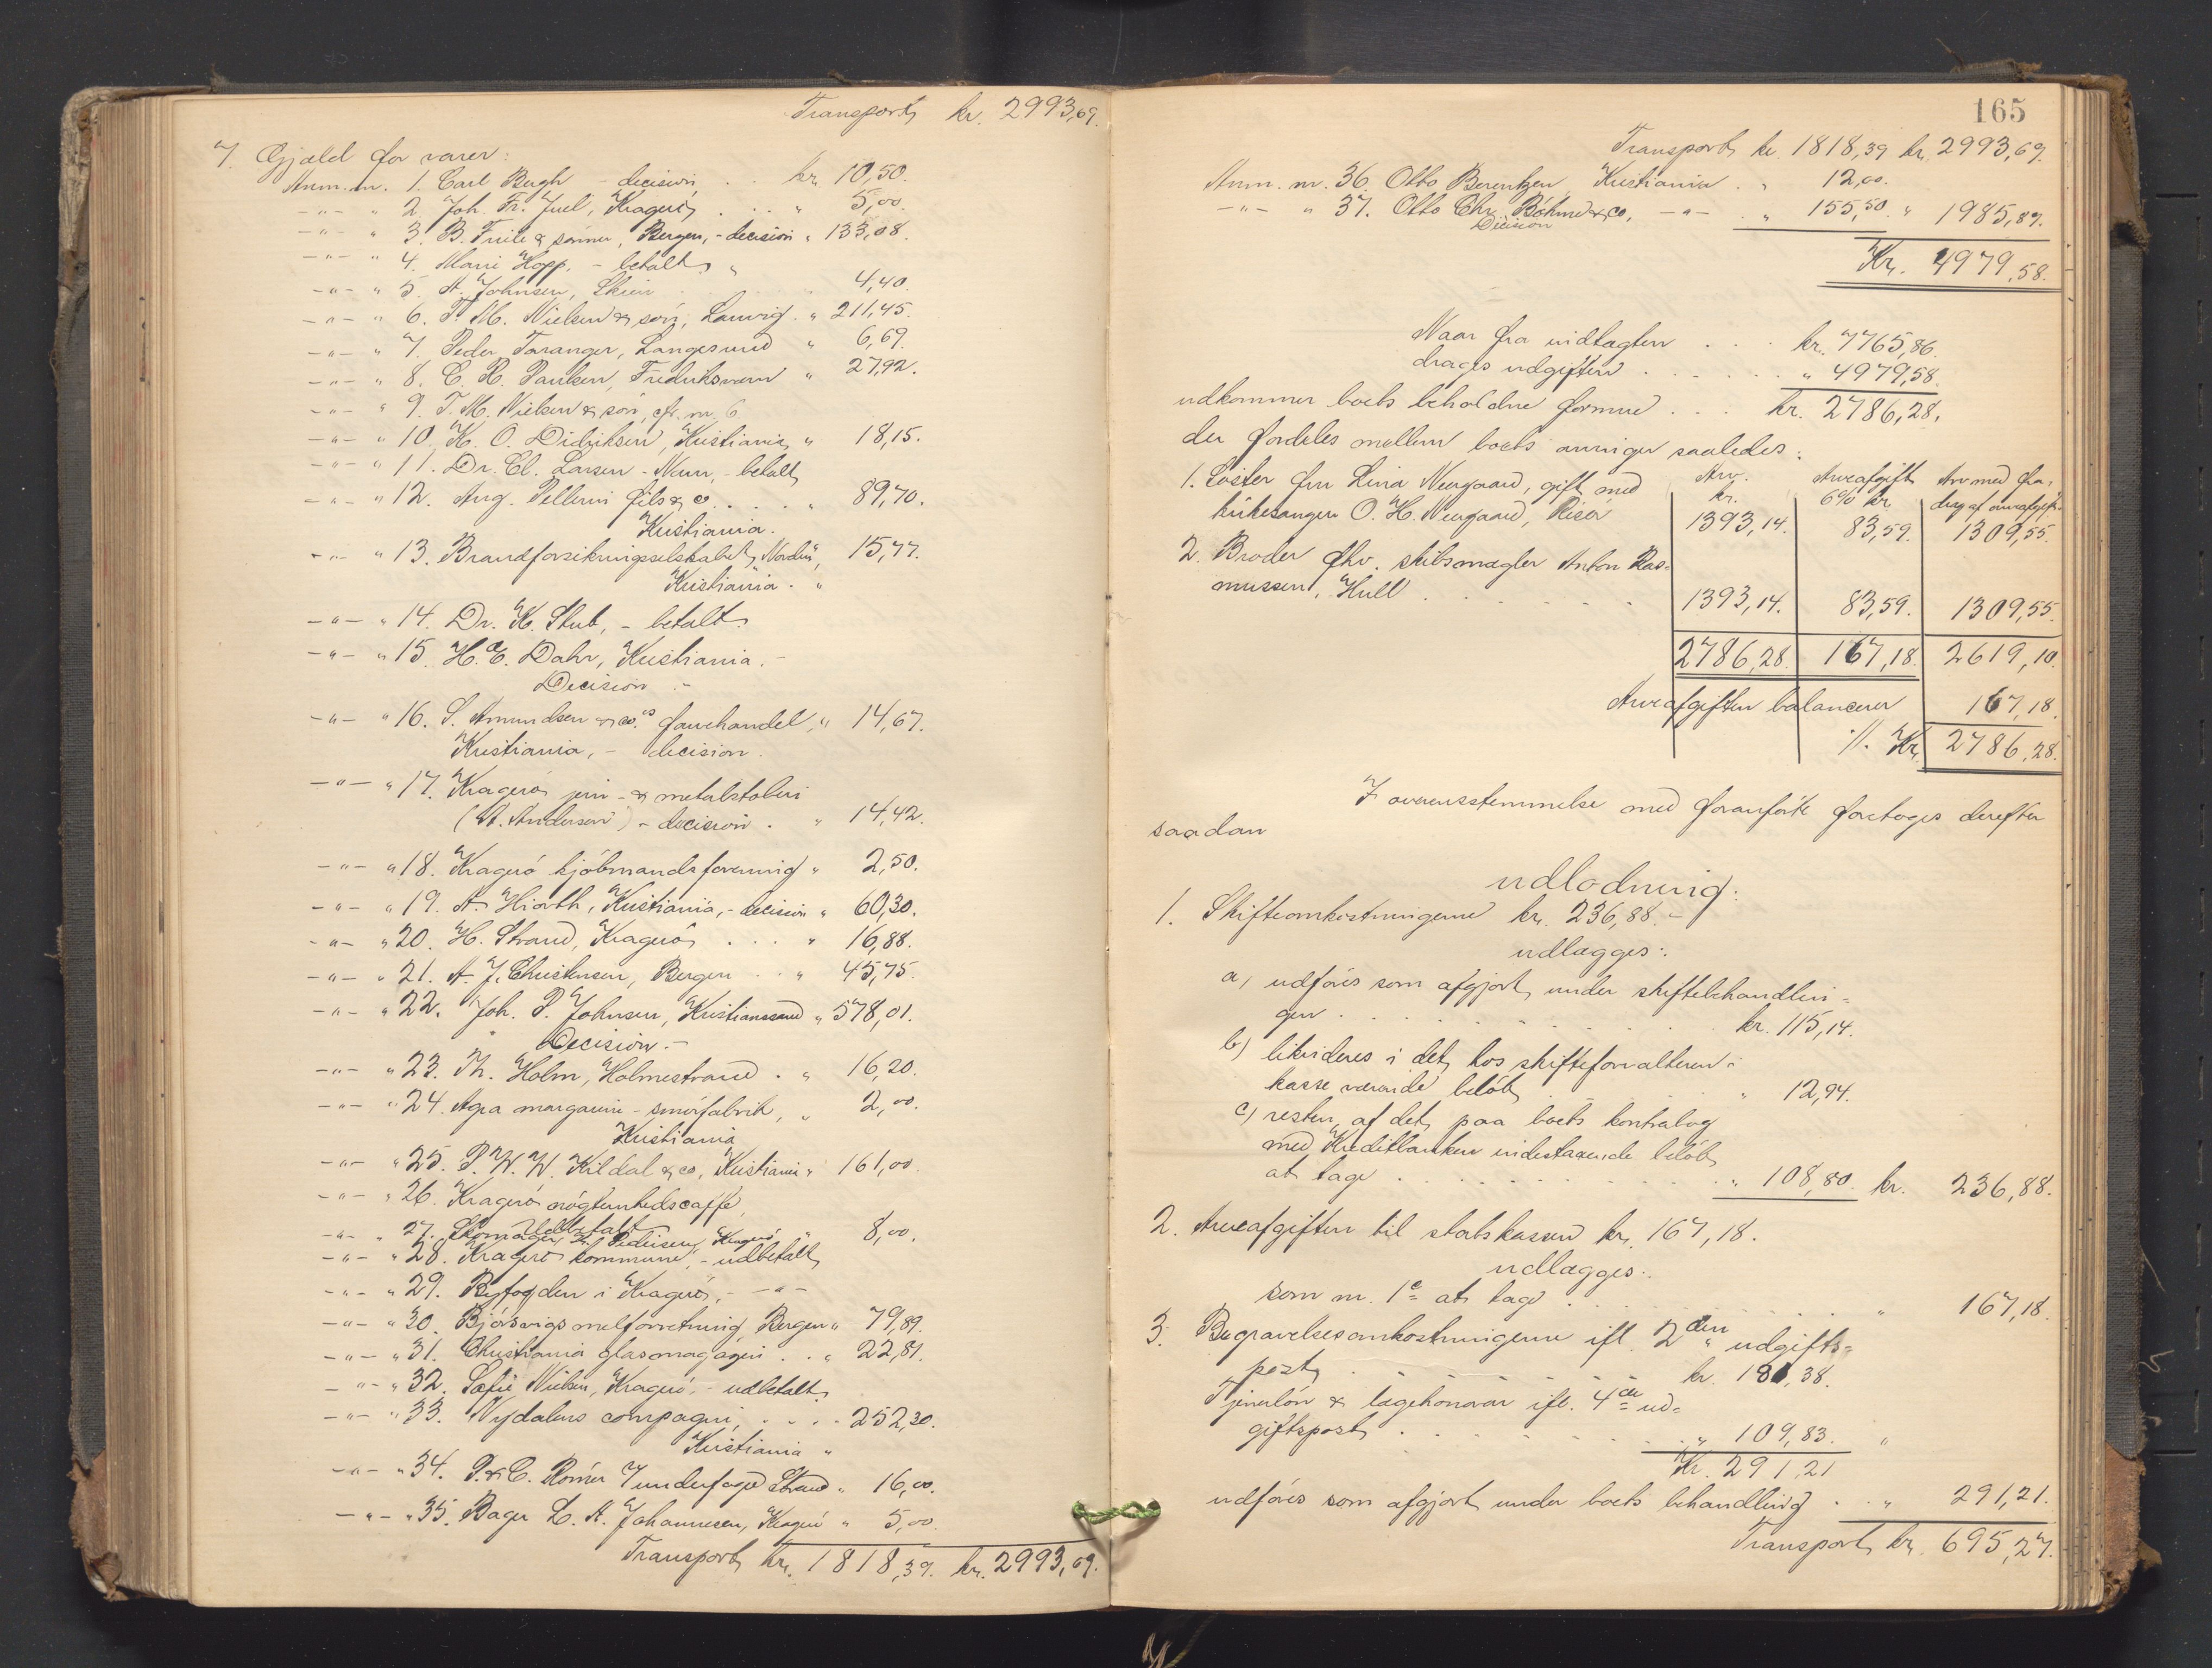 Transport kr. 2993,69.
7. Gjæld for varer:
Anm. nr. 1. Carl Bugh - decision . . kr. 10,50.
-"- " 2. Joh. Fr. Juel, Kragerö . . . " 5,00.
-"- " 3. B. Friele & sönner, Bergen, - decision " 133,08.
-"- " 4. Marie Hopp, - betalt "
-"- " 5. A. Johnsen, Skien 4,40.
-"- " 6. T. M. Nielsen & sön, Laurvig . " 211,45.
-"- " 7. Peder Taranger, Langesund " 6,69.
-"- " 8. C. R. Paulsen, Fredriksværn " 27,92.
-"- " 9. T. M. Nielsen & sön, cfr. nr. 6.
-"- " 10. K. O. Didriksen, Kristiania " 18,15.
-"- " 11. Dr. Cl. Larsen - Næss, - betalt
-"- " 12. Aug. Pellerin fils & co . . . . " 89,70.
Kristiania.
-"- " 13. Brandforsikringsselskabet "Norden", 15,77.
Kristiania. "
-"- " 14. Dr. K. Stub, - betalt
-"- " 15. H. E. Dahr, Kristiania. -
Decision -
-"- " 16. S. Amundsen & co.s farvehandel, " 14,67.
Kristiania, - decision.
-"- " 17. Kragerö jern- & metalstöberi
(A. Andersen) - decision . " 14,42.
-"- " 18. Kragerö kjöbmandsforening " 2,50.
-"- " 19. A. Hiorth, Kristiania, - decision " 60,30.
-"- " 20. H. Strand, Kragerö . . . " 16,88.
-"- " 21. A. J. Christensen, Bergen . . " 45,75.
-"- " 22. Joh. P. Johnsen, Kristianssand " 578,01.
Decision. -
-"- " 23. Th. Holm, Holmestrand . " 16,20.
-"- " 24. Agra margarin-smörfabrik, " 2,00.
Kristiania
-"- " 25. P. W. W. Kildal & co, Kristiania " 161,00.
-"- " 26. Kragerö nögternhedscaffe,
Udbetalt
-"- " 27. Skomager Pedersen, Kragerö " 8,00.
-"- " 28. Kragerö kommune, - udbetalt
-"- " 29. Byfogden i Kragerö, - -"-
-"- " 30. Björsvigs melforretning, Bergen " 79,89.
-"- " 31. Christiania glasmagasin . . " 22,81.
-"- " 32. Sofie Nielsen, Kragerö, - udbetalt
-"- " 33. Nydalens compagni, . . . 252,30.
Kristiania "
-"- " 34. P. & C. Römer Junderfoged Strand " 16,00.
-"- " 35. Bager L. A. Johannesen, Kragerö " 5,00.
Transport kr. 1818,39. kr. 2993,69.
165
Transport kr. 1818,39 kr. 2993,69.
Anm. nr. 36. Otto Berentzen, Kristiania . " 12,00.
-"- " 37. Otto Chr. Böhme & co, -"- . " 155,50. " 1985,89.
Decision
Kr. 4979,58.
Naar fra indtægten . . . kr. 7765,86.
drages udgiften . . . . . . " 4979,58.
udkommer boets beholdne formue . . . kr. 2786,28.
der fordeles mellem boets arvinger saaledes:
Arv. kr. Arveafgift 6% kr. Arv med fradrag af arveafgift.
1. Söster fru Lina Neergaard, gift med
kirkesanger O. H. Neergaard, Risör 1393,14. 83,59. 1309,55.
2. Broder fhv. skibsmægler Anton Ras-
mussen, Hull . . . . . . 1393,14. 83,59. 1309,55.
2786,28. 167,18. 2619,10.
Arveafgiften balancerer 167,18.
//. Kr. 2786,28.
I overensstemmelse med foranförte foretoges derefter
saadan
udlodning:
1. Skifteomkostningerne kr. 236,88. -
udlægges:
a) udföres som afgjort under skiftebehandlin-
gen . . . . . . . . . kr. 115,14.
b) likvideres i det hos skifteforvalteren i
kasse værende belöb . . . . . " 12,94.
c) resten af det paa boets kontrabog
med Kreditbanken indestaaende belöb
at tage . . . . . . . . . " 108,80. kr. 236,88.
2. Arveafgiften til statskassen kr. 167,18.
udlægges:
som nr. 1c at tage . . . . . . . . " 167,18.
3. Begravelsesomkostningerne ifl. 2den udgifts-
post . . . . . . . kr. 181,38.
Tjenerlön & lægehonorar ifl. 4de ud-
giftspost . . . . . . . " 109,83. "
Kr. 291,21
udföres som afgjort under boets behandling . . " 291,21.
Transport kr. 695,27.